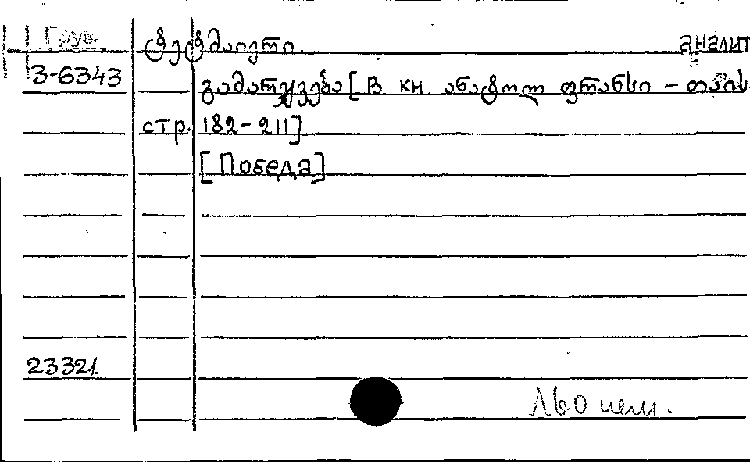 Груз. ტეტმაიერი. аналит
3-6343 გამარჯვება [В кн. ანატოლ ფრანსი – თაის
стр. 182-211]
[Победа]
23321